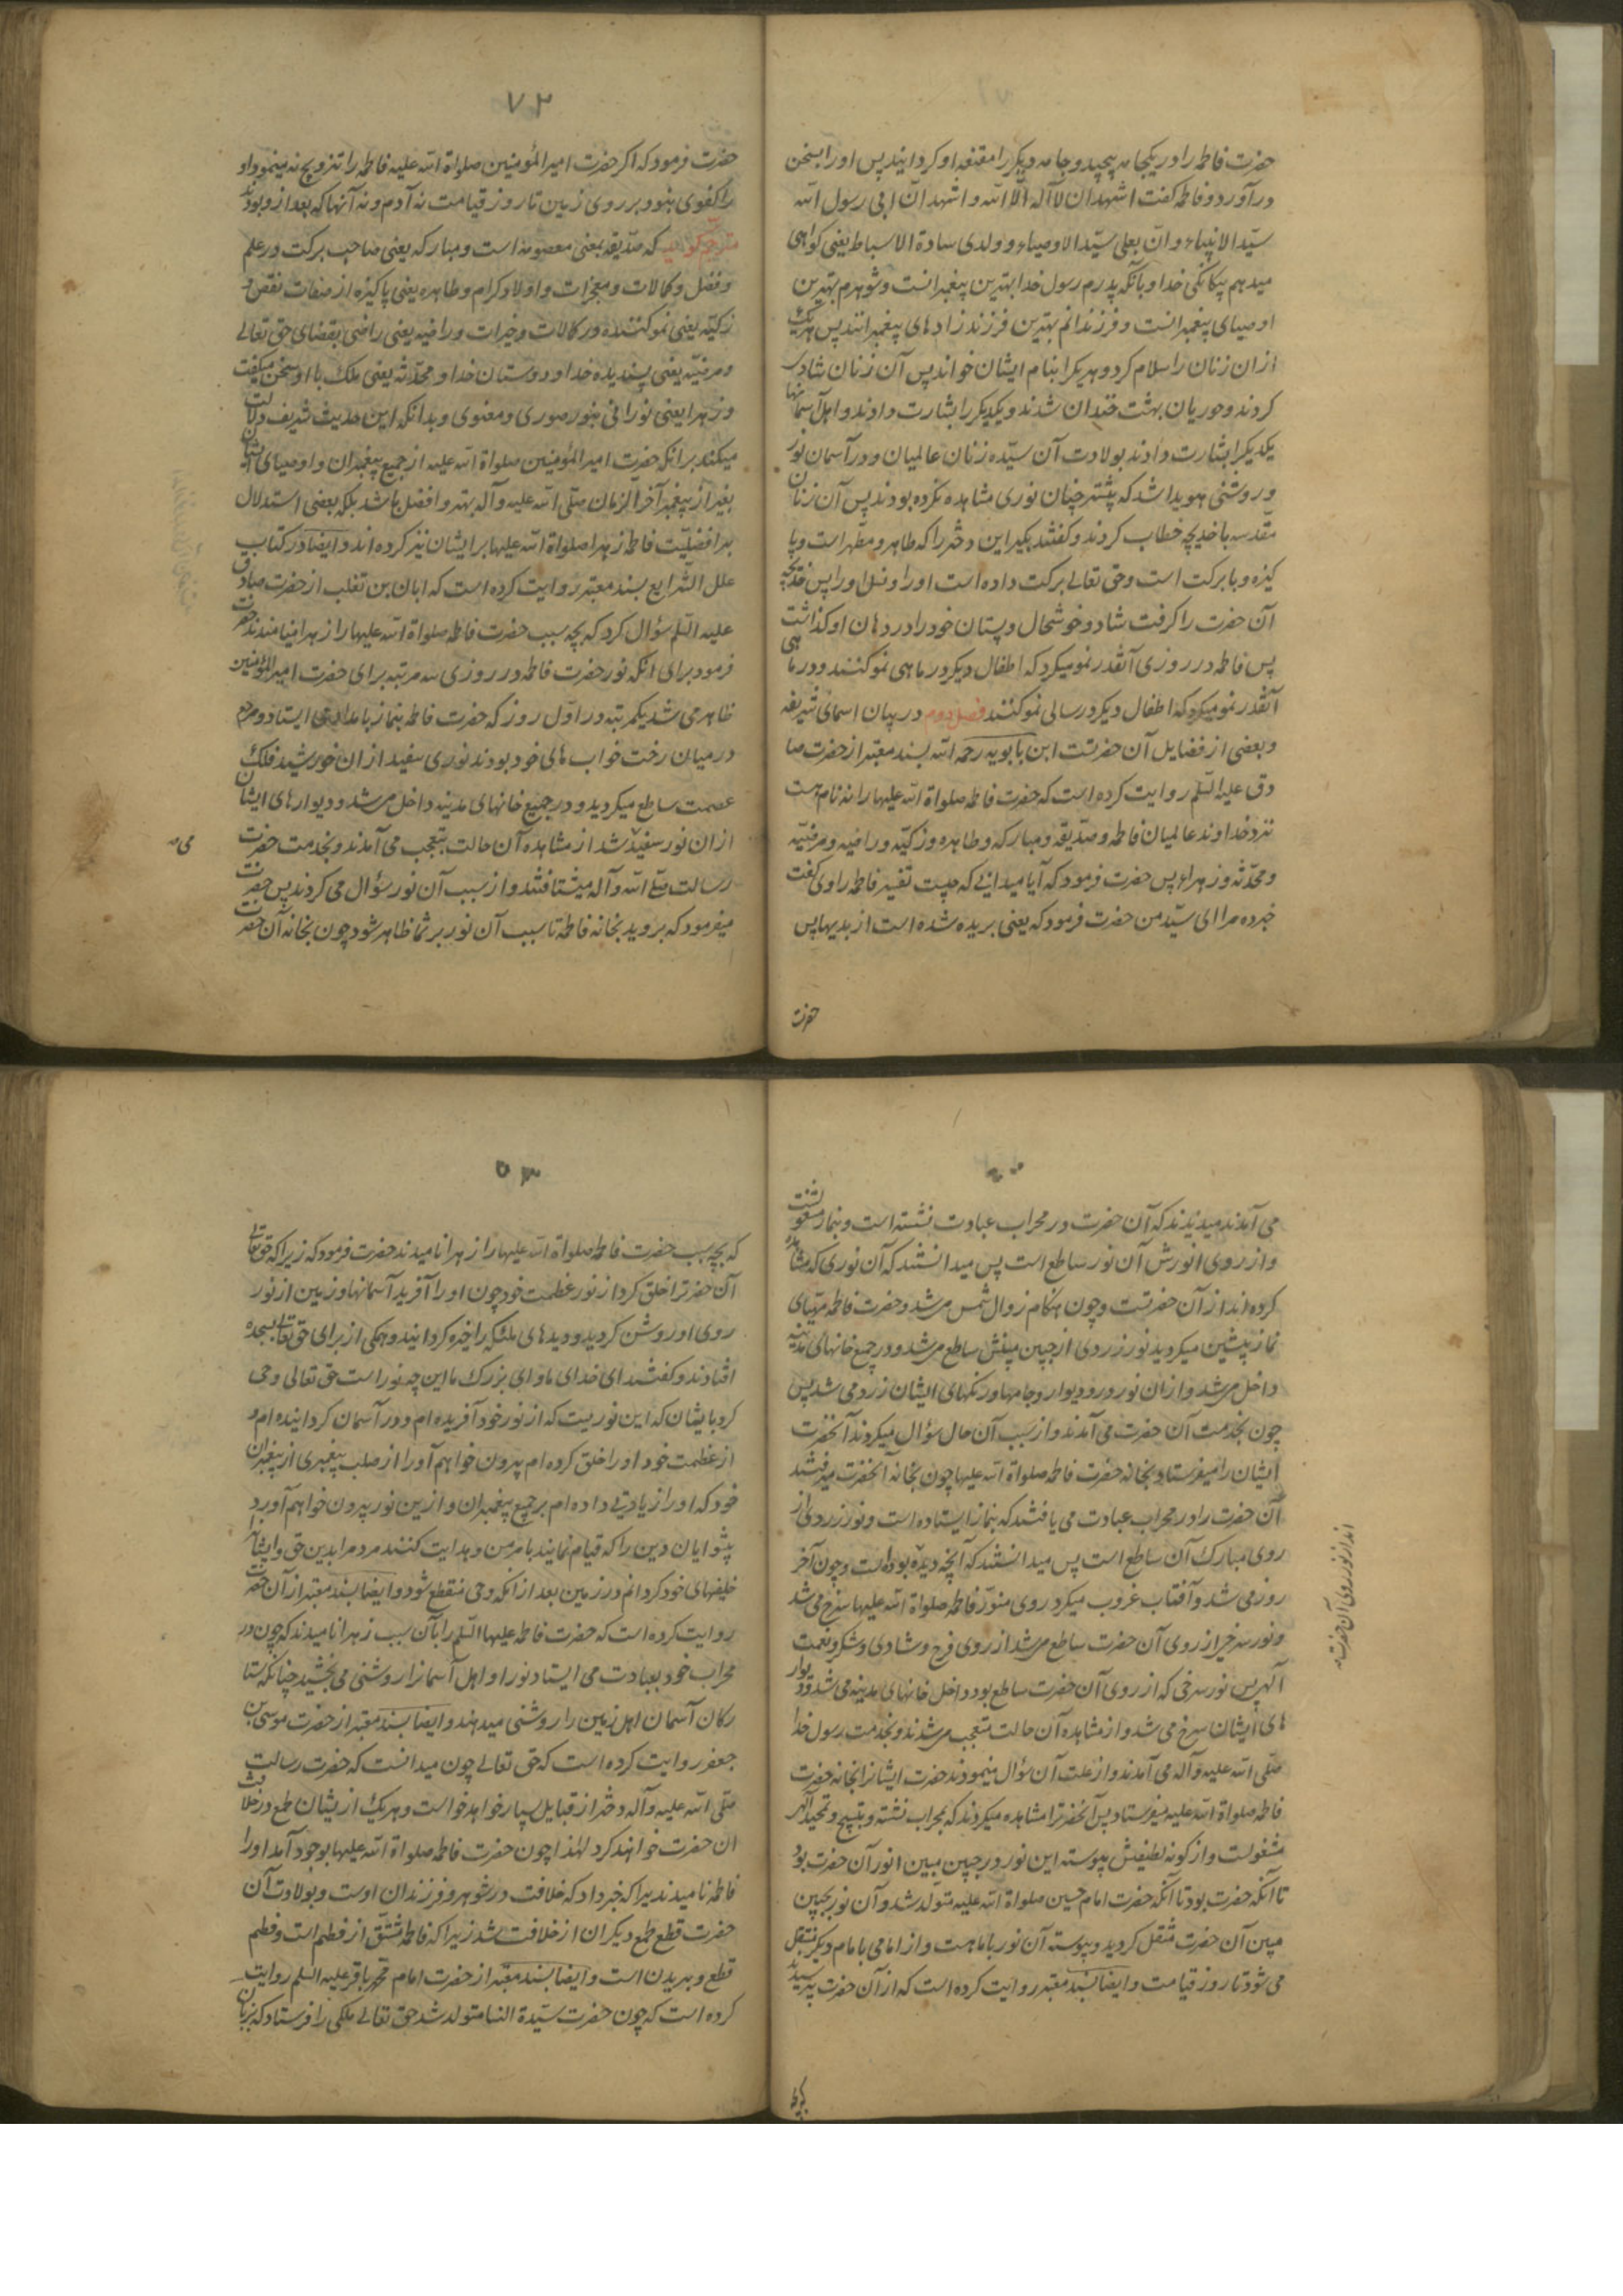 حضرت فاطمه را در یکجامه پیچید و جامه دیکر را مقنعه او کردانید پس او را بسخن
در آورد و فاطمه کفت اشهد ان لا اله الا الله و اشهد ان ابی رسول الله
سید الانبیاء و ان بعلی سید الاوصیاء و ولدی سادة الاسباط یعنی کواهی
میدهم بیکانکی خدا و بانکه پدرم رسول خدا بهترین پیغمبرانست و شوهرم بهترین
اوصیای پیغمبرانست و فرزندانم بهترین فرزندزادهای پیغمبرانند پس هریک
از ان زنان را سلام کرد و هریکرا بنام ایشان خواند پس آن زنان شادی
کردند و حوریان بهشت خندان شدند و یکدیکر را بشارت دادند و اهل آسمانها
یکدیکرا بشارت دادند بولادت آن سیده زنان عالمیان و در آسمان نور
و روشنی هویدا شد که پیشتر چنان نوری مشاهده نکرده بودند پس آن زنان
مقدسه با خدیجه خطاب کردند و کفتند بکیر این دختر را که طاهر و مطهر است و پا
کیزه و با برکت است و حق تعالی برکت داده است او را و نسل او را پس خدیجه
آن حضرت را کرفت شاد و خوشحال و پستان خود را در دهان او کذاشت
پس فاطمه در روزی آنقدر نمو میکرد که اطفال دیکر در ماهی نمو کنند و در ماهی
آنقدر نمو میکرد که اطفال دیکر در سالی نمو کنند فصل دوم در بیان اسمای شریفه
و بعضی از فضایل آن حضرتست ابن بابویه رحمه الله بسند معتبر از حضرت صا
دق علیه السلم روایت کرده است که حضرت فاطمه صلواة الله علیها را نه نام هست
نزد خداوند عالمیان فاطمه و صدیقه و مبارکه و طاهره و زکیه و راضیه و مرضیه
و محدثه و زهراء پس حضرت فرمود که آیا میدانی که چیست تفسیر فاطمه راوی کفت
خبر ده مرا ای سید من حضرت فرمود که یعنی بریده شده است از بدیها پس
حضرت
۷۲
حضرت فرمود که اکر حضرت امیرالمؤمنین صلواة الله علیه فاطمه را تزویج نه مینمود او
را کفوی نبود بر روی زمین تا روز قیامت نه آدم و نه آنها که بعد از و بودند
مترجم کوید که صدیقه بمعنی معصومه است و مبارکه یعنی صاحب برکت در علم
و فضل و کمالات و معجزات و اولاد کرام و طاهره یعنی پاکیزه از صفات نقص و
زکیه یعنی نمو کننده در کالات و خیرات و راضیه یعنی راضی بقضای حق تعالی
و مرضیه یعنی پسندیده خدا و دوستان خدا و محدثه یعنی ملک با او سخن میکفت
و زهرا یعنی نورانی بنور صوری و معنوی و بدانکه این حدیث شریف دلالت
میکند بر انکه حضرت امیر المؤمنین صلواة الله علیه از جمیع پیغمبران و اوصیای ایشان
بغیر از پیغمبر آخر الزمان صلی الله علیه و آله بهتر و افضل باشد بلکه بعضی استدلال
بر افضلیت فاطمه زهرا صلواة الله علیها بر ایشان نیز کرده اند و ایضا در کتاب
علل الشرایع بسند معتبر روایت کرده است که ابان بن تغلب از حضرت صادق
علیه السلم سؤال کرد که بچه سبب حضرت فاطمه صلواة الله علیها را زهرا نامیدند حضرت
فرمود برای انکه نور حضرت فاطمه در روزی سه مرتبه برای حضرت امیرالمؤمنین
ظاهر می شد یکمرتبه در اول روز که حضرت فاطمه بنماز بامداد می ایستاد و مردم
در میان رخت خواب های خود بودند نوری سفید از ان خورشید فلک
عصمت ساطع میکردید و در جمیع خانهای مدینه داخل مر شد و دیوارهای ایشان
از ان نور سفید شد از مشاهده آن حالت بتعجب می آمدند و بخدمت حضرت
رسالت صلی الله و آله میشتافتند و از سبب آن نور سؤال می کردند پس حضرت
میفرمود که بروید بخانه فاطمه تا سبب آن نور بر شما ظاهر شود چون بخانه آن حضرت
می
می آمدند میدیدند که آن حضرت در محراب عبادت نشسته است و بنماز مشغولست
و از روی انورش آن نور ساطع است پس میدانستند که آن نوری که مشاهده
کرده اند از آن حضرتست و چون هنکام زوال شمس مر شد و حضرت فاطمه مهیای
نماز پیشین میکردید نور زردی از جبین مبینش ساطع مر شد و در جمیع خانهای مدینه
داخل مر شد و از ان نور در و دیوار و جامها و رنکهای ایشان زرد می شد پس
چون بخدمت آن حضرت می آمدند و از سبب آن حال سؤال میکردند آنحضرت
ایشان را میفرستاد بخانه حضرت فاطمه صلواة الله علیها چون بخانه آنحضرت میرفتند
آن حضرت را در محراب عبادت می یافتند که بنماز ایستاده است و نور زردی از
روی مبارک آن ساطع است پس میدانستند که آنچه دیده بوداست و چون آخر
روز می شد و آفتاب غروب میکرد روی منور فاطمه صلواة الله علیها سرخ می شد
و نور سرخی از روی آن حضرت ساطع مر شد از روی فرح و شادی و شکر و نعمت
آلهی پس نور سرخی که از روی آن حضرت ساطع بود داخل خانهای مدینه می شد و دیوار
های ایشان سرخ می شد و از مشاهده آن حالت متعجب مر شدند و بخدمت رسول خدا
صلی الله علیه و آله می آمدند و از علت آن سؤال مینمودند حضرت ایشانرا بخانه حضرت
فاطمه صلواة الله علیه میفرستاد پس آنحضرترا مشاهده میکردند که بمحراب نشسته و بتسبیح و تمجید آلهی
مشغولست و از کونه لطیفش پیوسته این نور در جبین مبین انور آن حضرت بود
تا آنکه حضرت بود تا آنکه حضرت امام حسین صلواة الله علیه متولد شد و آن نور بجبین
مبین آن حضرت منتقل کردید و پیوسته آن نور با ماهست و از امامی با مام دیکر منتقل
می شود تا روز قیامت و ایضا بسند معتبر روایت کرده است که از آن حضرت پرسیدند
اند از نور روی آن حضرت
که بچه سبب حضرت فاطمه صلواة الله علیها را زهرا نامیدند حضرت فرمود که زیرا که حق تعالی
آن حضرترا خلق کرد از نور عظمت خود چون او را آفرید آسمانها و زمین از نور
روی او روشن کردید و دیدهای ملئکه را خیره کردانید و همکی از برای حق تعالی بسجده
افتادند و کفتند ای خدای ما و ای بزرک ما این چه نور است حق تعالی وحی
کرد بایشان که این نوریست که از نور خود آفریده ام و در آسمان کردانیده ام و
از عظمت خود او را خلق کرده ام بیرون خواهم آورا از صلب پیغمبری از پیغمبران
خود که او را زیادتی داده ام بر جمیع پیغمبران و از ین نور بیرون خواهم آورد
پیشوایان دین را که قیام نمایند بامر من و هدایت کنند مردم را بدین حق و ایشانرا
خلیفهای خود کردانم در زمین بعد از آنکه وحی منقطع شود و ایضا بسند معتبر از آن حضرت
روایت کرده است که حضرت فاطمه علیها السلم را بآن سبب زهرا نامیدند که چون در
محراب خود بعبادت می ایستاد نور او اهل آسمانرا روشنی می بخشید چنانکه ستا
رکان آسمان اهل زمین را روشنی میدهند و ایضا بسند معتبر از حضرت موسی بن
جعفر روایت کرده است که حق تعالی چون میدانست که حضرت رسالت
صلی الله علیه و آله دختر از قبایل بسیار خواهد خواست و هریک از یشان طمع در خلافت
ان حضرت خواهند کرد لهذا چون حضرت فاطمه صلواة الله علیها بوجود آمد او را
فاطمه نامیدند زیرا که خبر داد که خلافت در شوهر و فرزندان اوست و بولادت آن
حضرت قطع طمع دیکران از خلافت شد زیرا که فاطمه مشتق از فطم است و فطم
قطع و بریدن است و ایضا بسند معتبر از حضرت امام محمد باقر علیه السلم روایت
کرده است که چون حضرت سیدة النسا متولد شد حق تعالی ملکی را فرستاد که بزبان